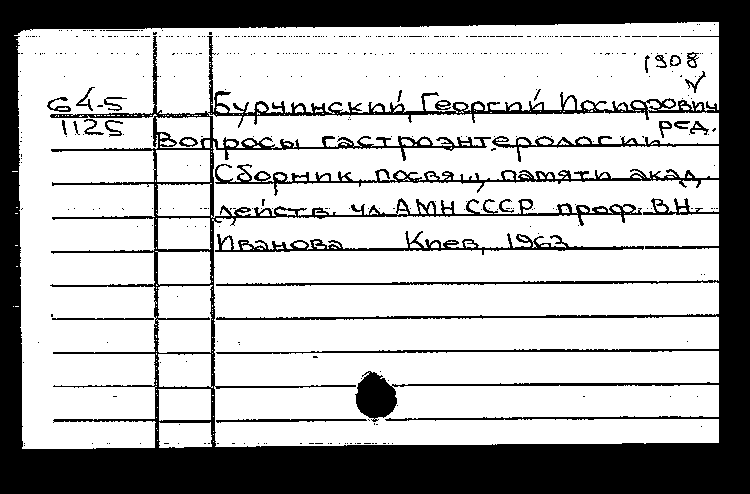 1908
64-5 Бурчинский, Георгий Иосифович
1125 ред.
Вопросы гастроэнтерологии.
Сборник, посвящ. памяти акад.
действ. чл. АМН СССР проф. В.Н.
Иванова Киев, 1963